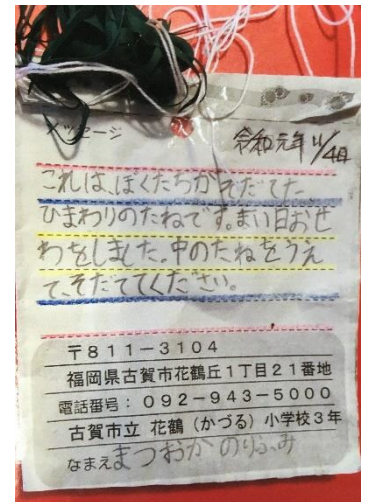 メッセージ
令和元年11/4日
これは、ぼくたちがそだてた
ひまわりのたねです。まい日おせ
わをしました。中のたねをうえ
て、そだててください。
〒811-3104
福岡県古賀市花鶴丘1丁目21番地
電話番号：092-943-5000
古賀市立 花鶴（かづる）小学校3年
なまえ まつおか のりふみ